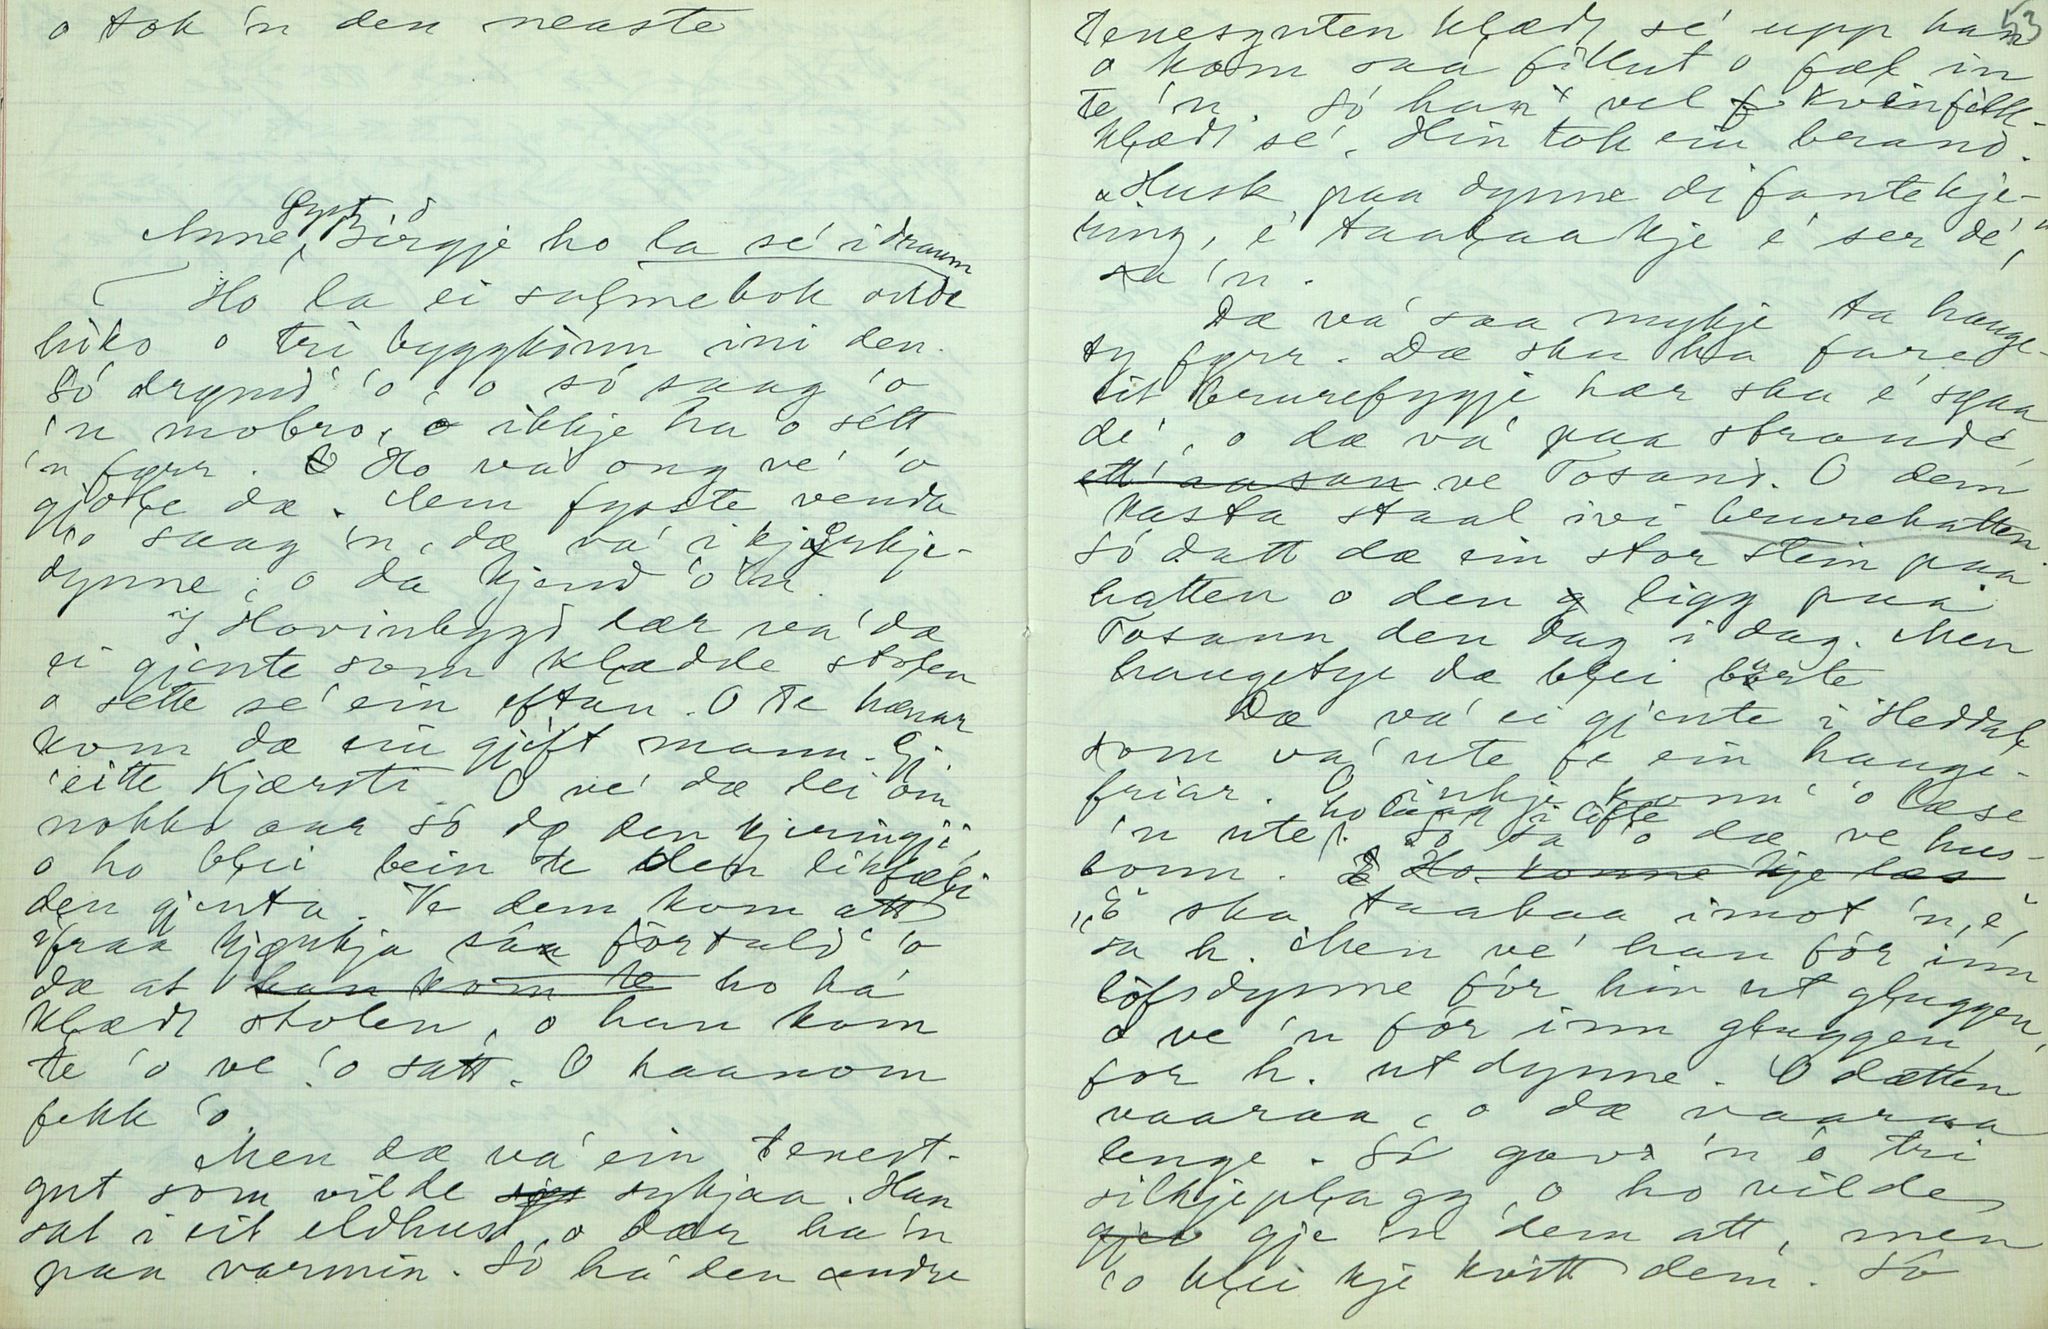 o tok 'n den neaste
Gyst o
Anne, Birgje ho la sé i draum
Ho la ei salmebok onde
hiko o tri byggkönn ini den.
Só drøymd' 'o, o só saag 'o
'n mobro, ikkje ha o sétt
'n fyrr. Ho vá ong vé 'o
gjole dæ. Dem fyste venda
ho saag 'n, dæ vá i kjyrkje-
dynne, o da kjend 'o 'n.
I Hovinbygd lær vá dæ
ei gjente som klædde stolen
o sette sé ein eftan. O te hænar
kom dæ ein gjift mann. Gj.
eitte Kjærsti. O vé dæ lei om
nokko aar só dø den kjeringji,
o ho blei bein te den likfæli
den gjenta. Ve dem kom att
ifraa kjørkja saa förtald' 'o
dæ at han kom te ho há
klædt stolen, o han kom
té 'o ve 'o satt. O haanom
fekk 'o.
Men dæ vá ein tenest-
gut som vilde sykjaa. Han
sat i eit eldhus, o dær ha 'n
paa varmin. Só há den andre
53
tenesguten klædt sé upp han
o kom saa fillut o fæl in
te 'n. Só han vel kvinfolk-
klædt sé. Hin tok ein brand.
"Husk paa dynne di fantekje-
ring, é taalaa kje é ser dé,"
sa 'n.
Dæ vá saa mykje ta hauge-
ty fyrr. Dæ sku ha fare
eit brurefygje hær sku é sjaa
dé, o dæ vá paa strondé,
ett' aasan ve Tosand. O dem
kasta staal ivi brurehatten
Só datt dæ ein stor stein paa
hatten o den ligg paa
Tosann den dag i dag. Men
haugetye dæ blei borte
Dæ vá ei gjente i Heddal
som vá ute fe ein hauge-
friar. O inkje konn' 'o læse
ho laag i löfte
'n ute. Só sa 'o dæ ve hus-
bonn. Ho konne kje læs
"É ska taalaa imot 'n, é,"
sa h. Men vé han för inn
löfsdynne för hin ut gluggen,
o ve 'n för inn gluggen,
for h. ut dynne. O dætten
vaaraa, o dæ vaaraa
lenge. Só gav 'n ó tri
silkjeplagg, o ho vilde
gje 'n dem att, men
'o blei kje kvitt dem. Só